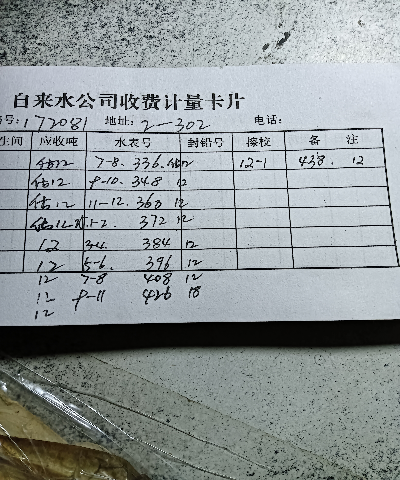 自来水公司收费计量卡片
号:172081 地址:2-302 电话:
生间 应收吨 水表号 封铅号 擦校 备 注
估12 7-8. 336. 估12 12-1 438. 12
估12 9-10. 348 12
估12 11-12. 360 12
估12 1-2. 372 12
12 3-4. 384 12
12 5-6. 396 12
12 7-8 408 12
12 9-11 426 18
12